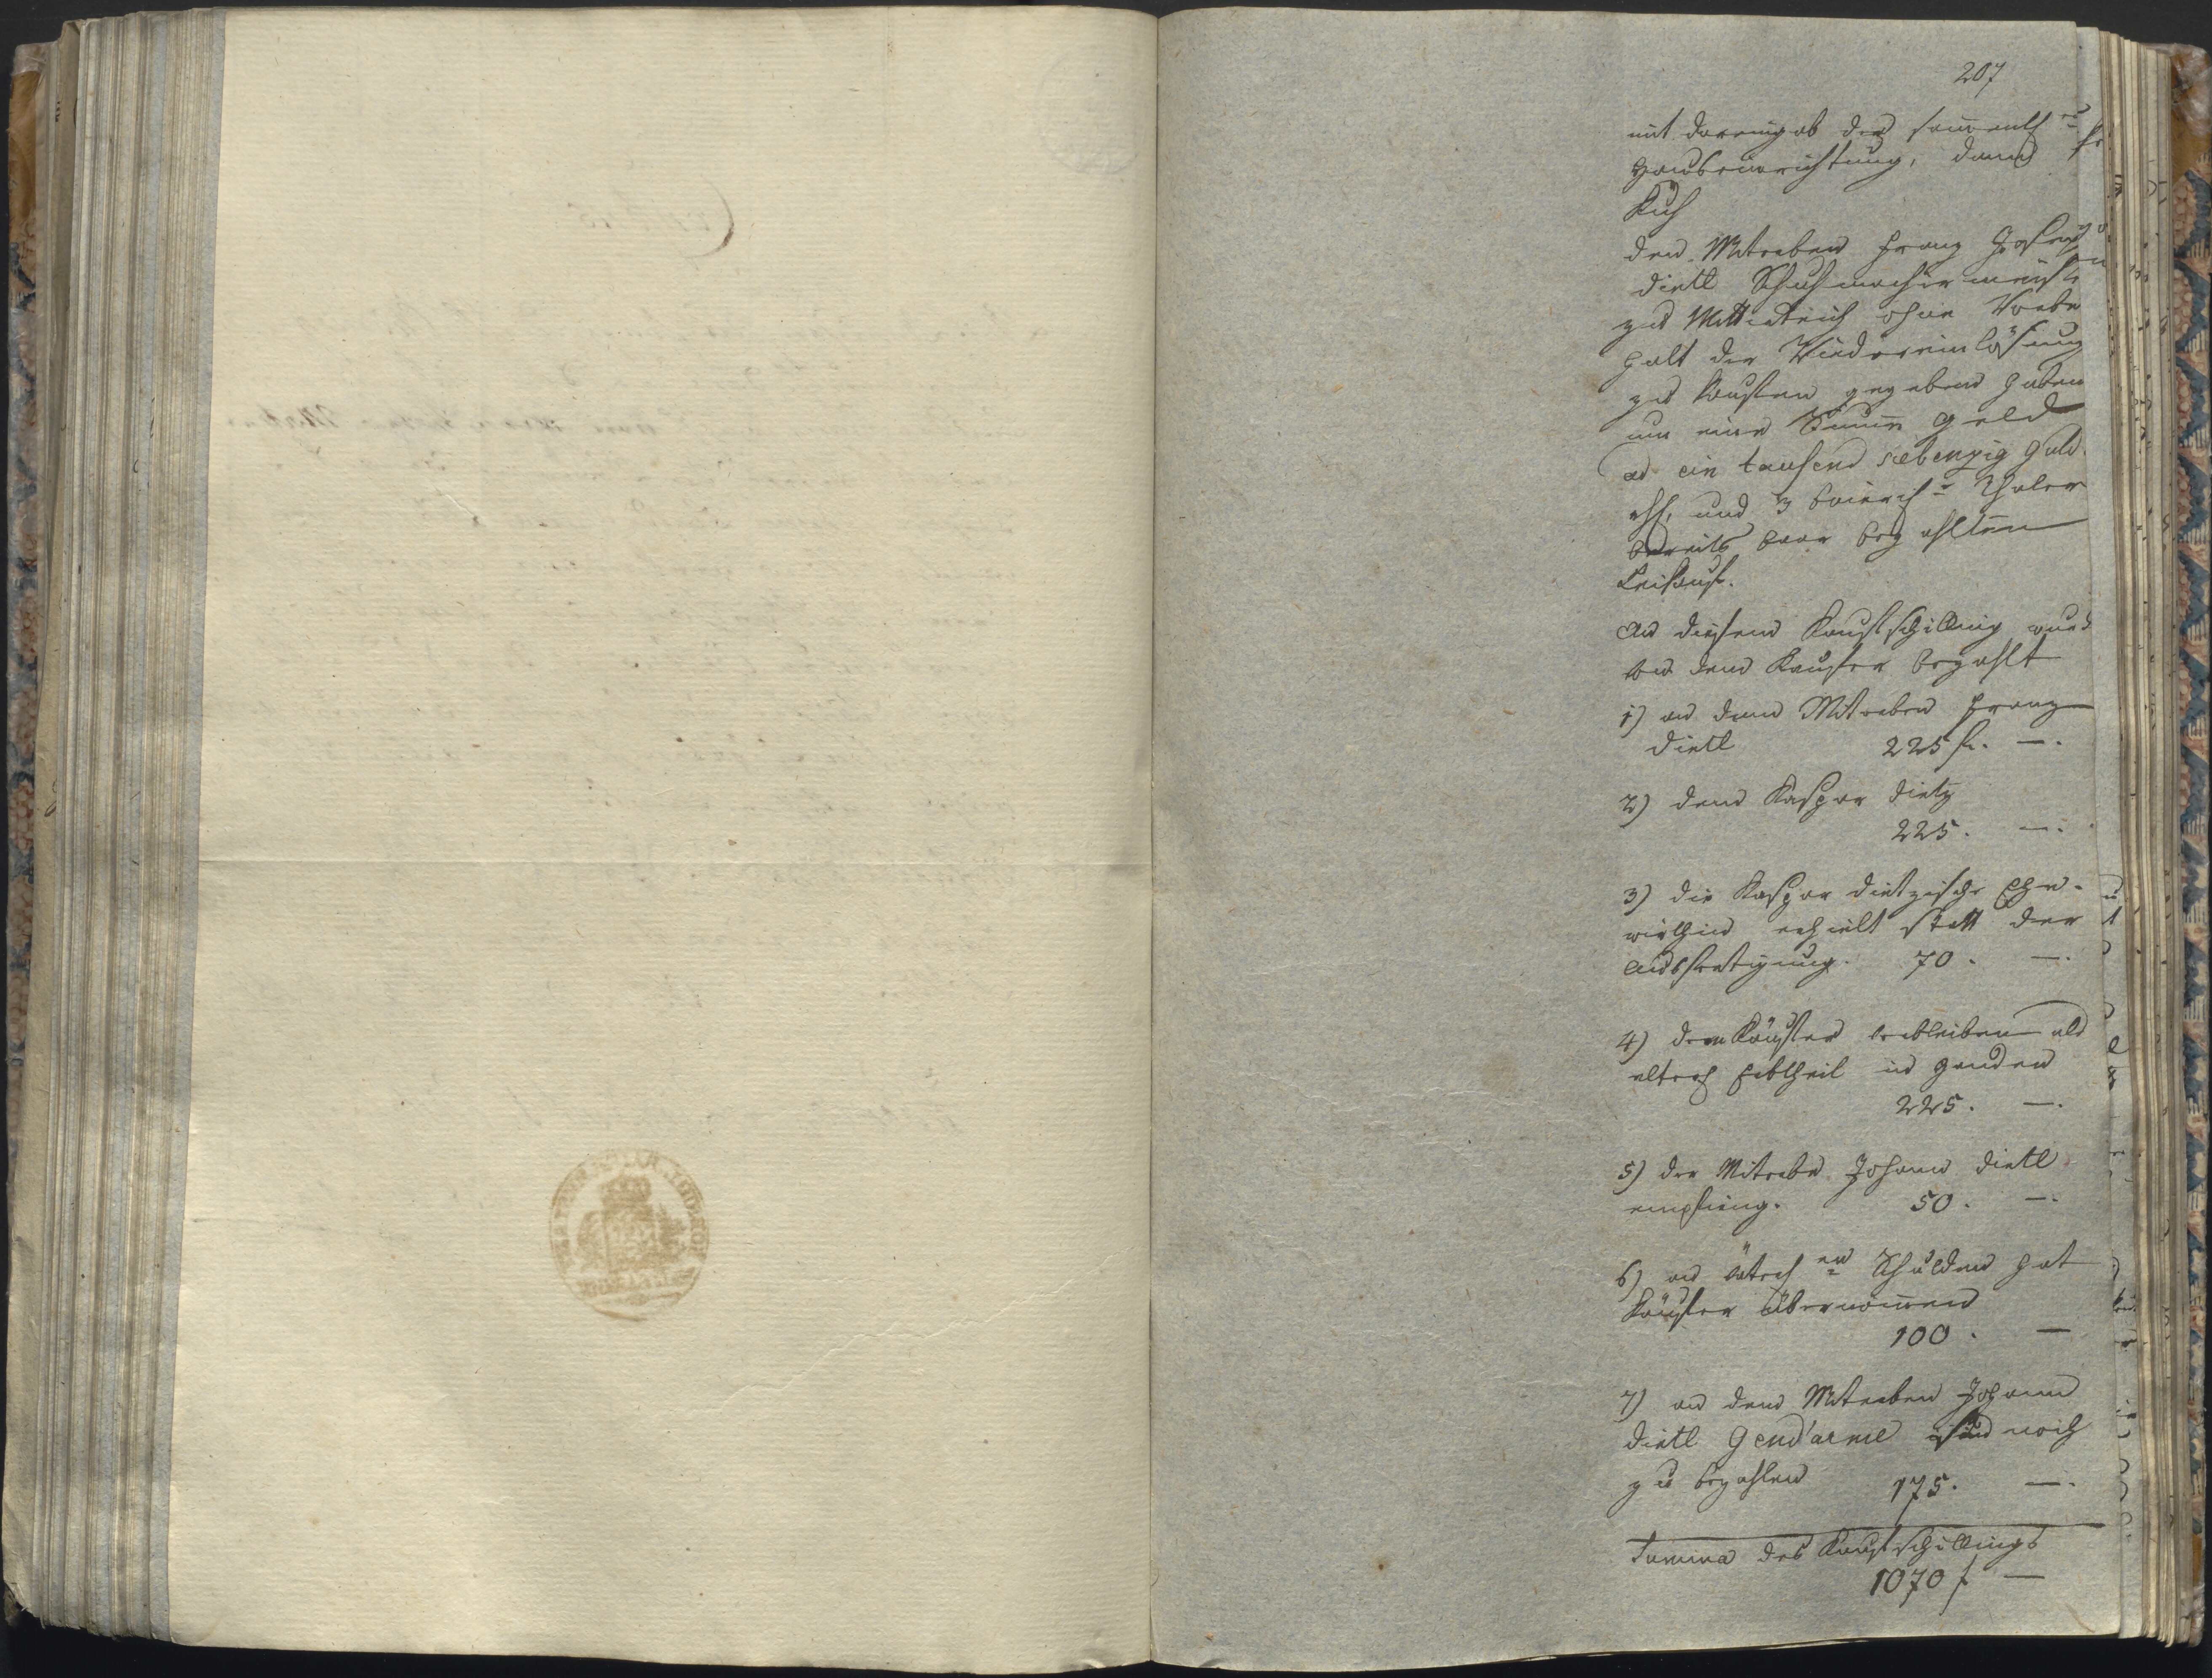 207
mit dareingab der sam̄entlh en
Hauseinrichtung, dann
Kuh
dem Miterben Franz Joseph
dietl Schuhmachermeister
zu Mitterteich ohne Vorbe
halt der Wiedereinlösung
zu kaufen gegeben haben
um eine Sum̄e Geld
ad ein tausend siebenzig Guld.
und 3 bairisch Thaler
bereits baar bezahlten
Leikauf.
An diesem Kaufschilling wurd
von dem Kaufer bezahlt
1) an dem Miterben Franz
dietl 225 fl. —.
2) dem Kaspar dietz
225. —.
3) die Kaspar dietzische Ehe-
wirthin erhielt statt der
Ausfertigung. 70. —.
4) dem Käufer verbleiben als
elterlh Erbtheil in Handen
225. —.
5) der Miterbe Johann dietl
empfieng. 50. —.
6) an vätterlh en Schulden hat
Käufer übernom̄en
100. —
7) an dem Miterben Johann
dietl Gend'arme sind noch
zu bezahlen 175. —.
Summa des Kaufschillings
1070 f —